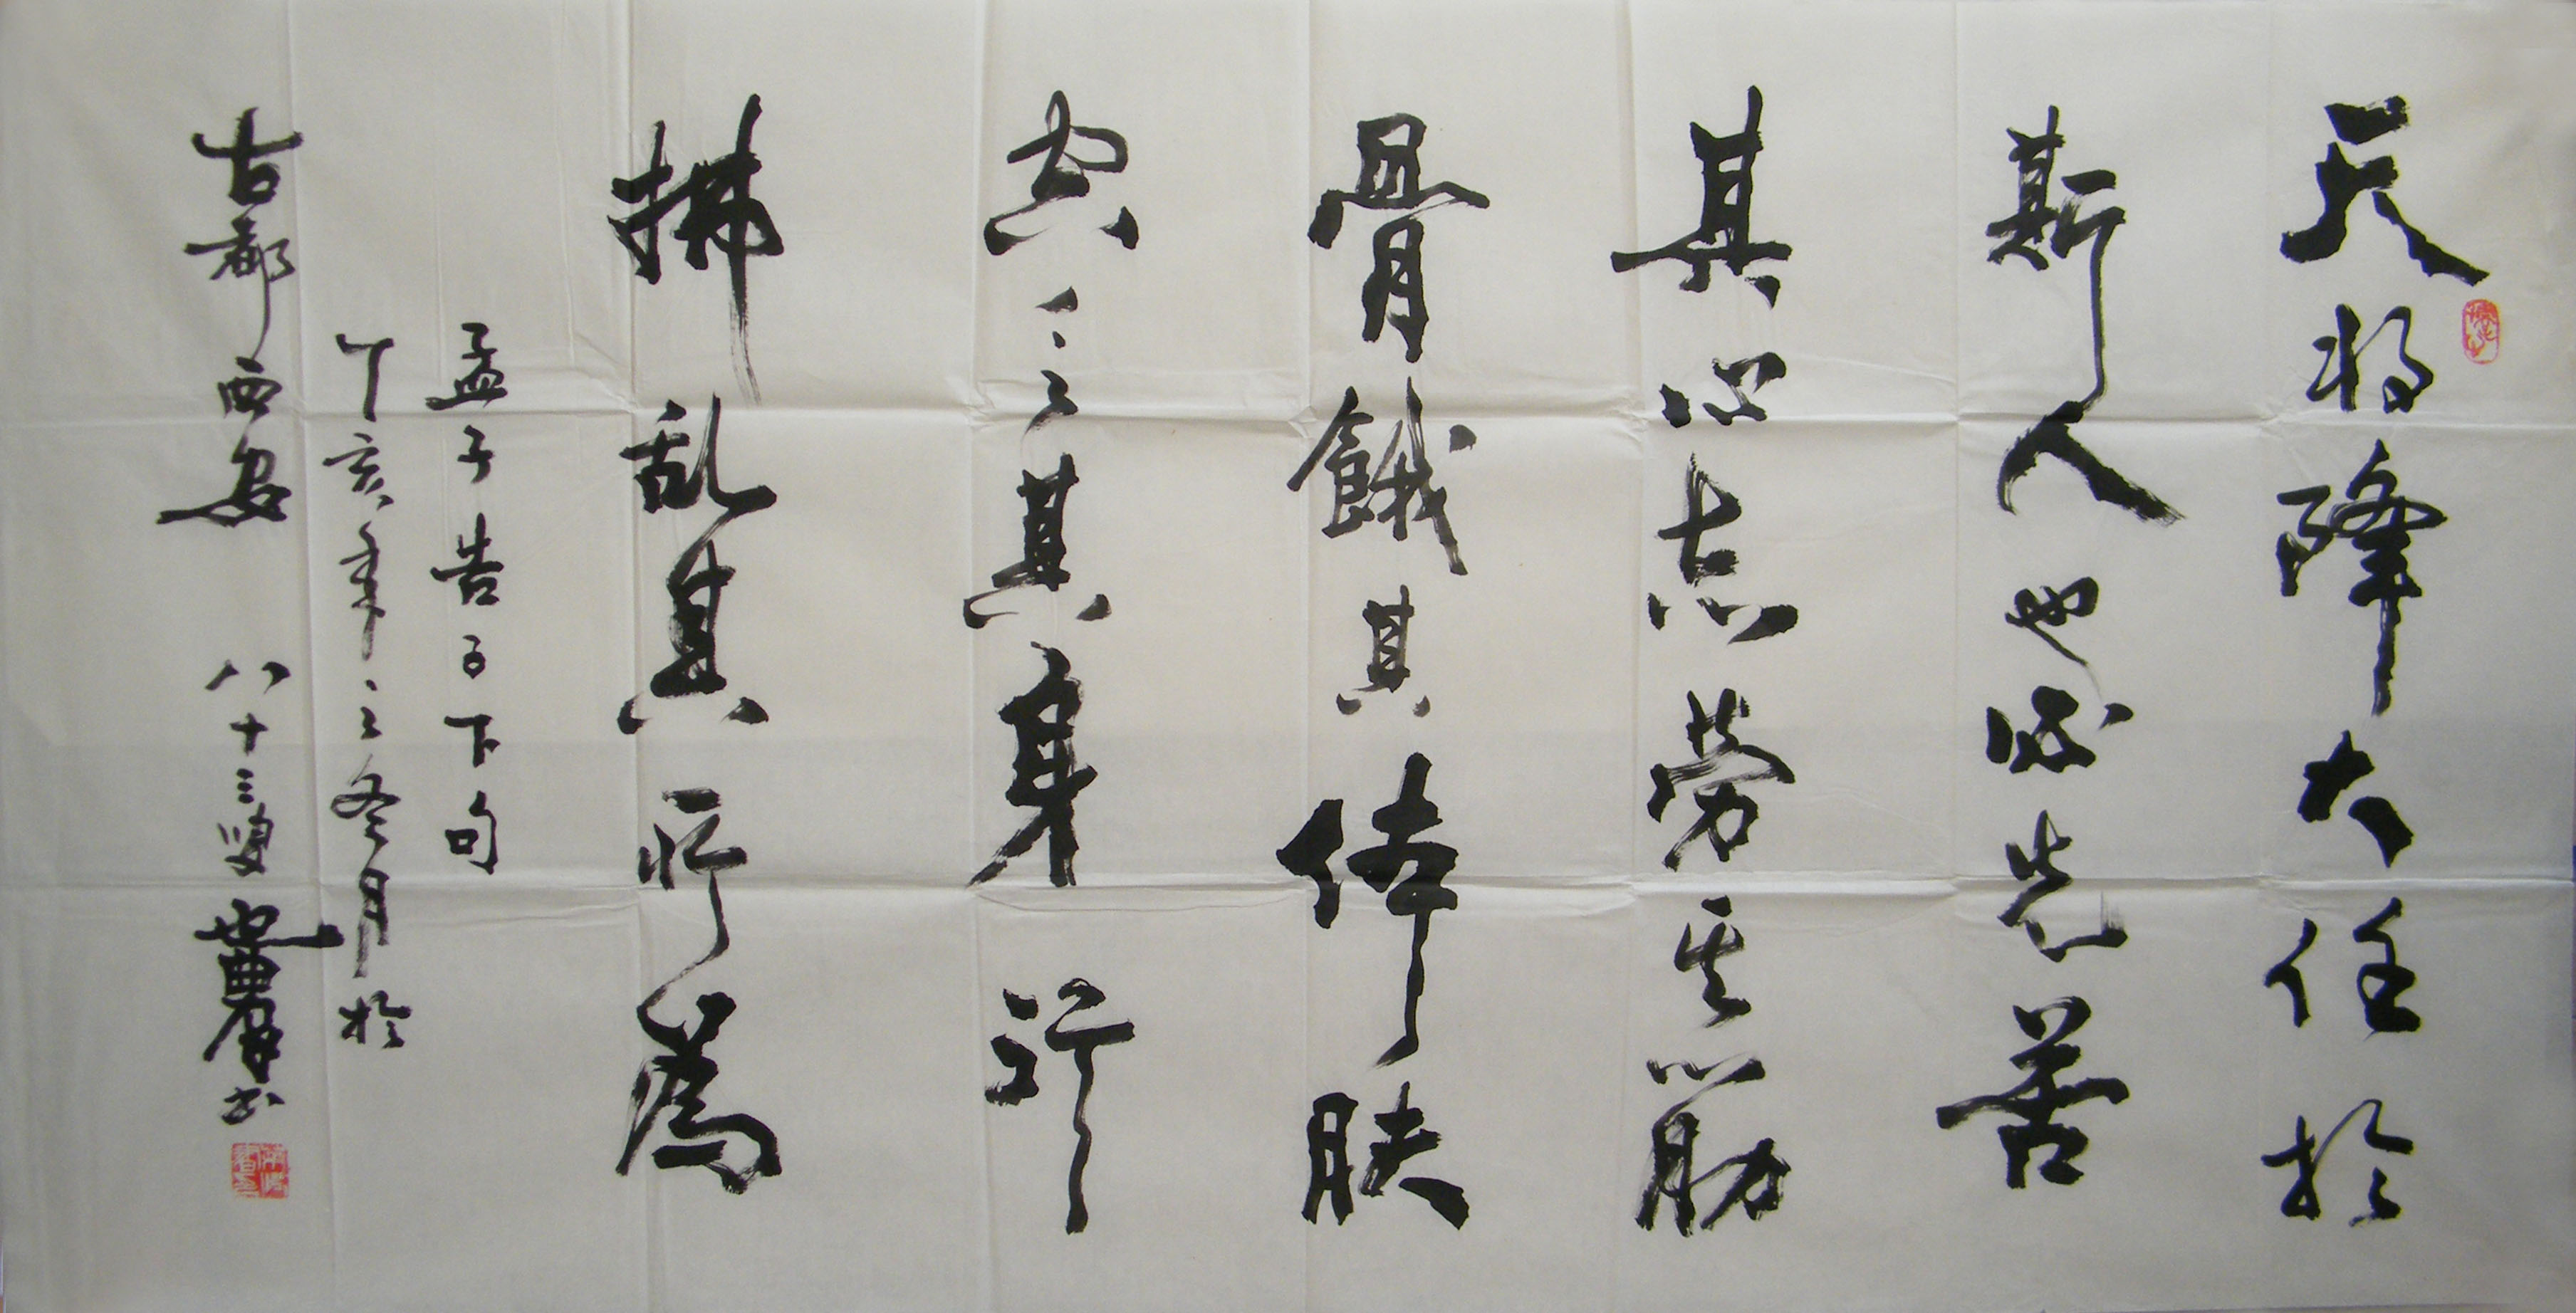 天将降大任於
斯人也必先苦
其心志劳其筋
骨餓其体肤
空乏其身行
拂乱其所為
孟子告子下句
丁亥年之冬月於
古都西安 八十三叟 書